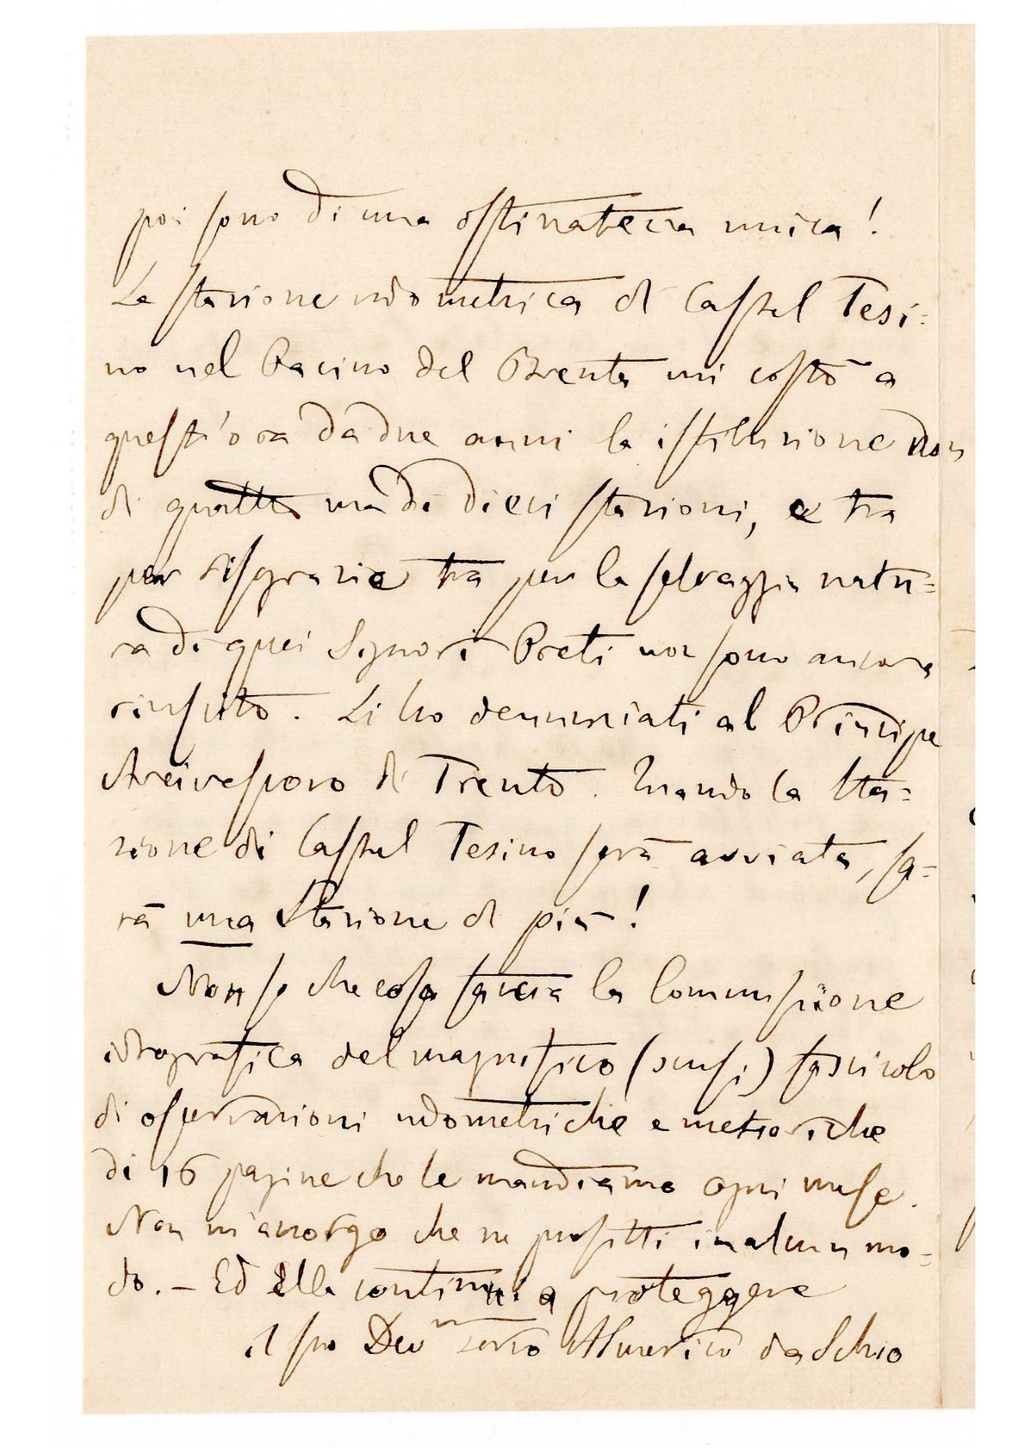 poi sono di una ostinatezza unica!
La stazione udometrica di Castel Tesi=
no nel Bacino del Brenta mi costò a
quest'ora da due anni la istituzione non
di quattro ma di dieci stazioni, e tra
per disgrazia tra per la selvaggia natu=
ra di quei Signori Preti non sono ancora
riuscito. Li ho denunziati al Principe
Arcivescovo di Trento. Quando la Sta=
zione di Castel Tesino sarà avviata, sa=
rà una Stazione di più!
Non so che cosa faccia la Commissione
idrografica del magnifico (scusi) fascicolo
di osservazioni udometriche e meteoriche
di 16 pagine che le mandiamo ogni mese.
Non m'accorgo che ne profitti in alcun mo=
do. – Ed Ella continui a proteggere
il suo Devmo servo Almerico da Schio